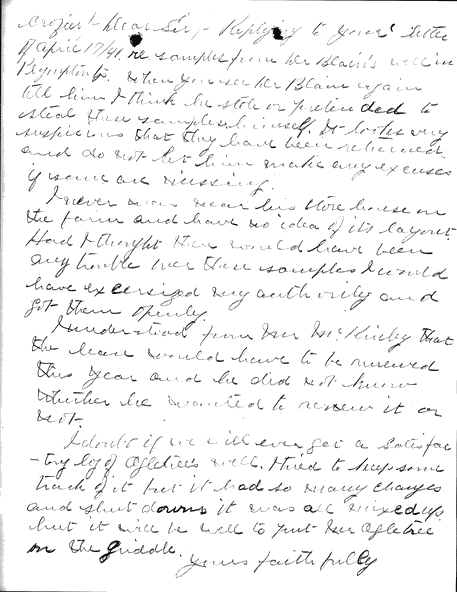 Crozier:- Dear Sir,- Replying to your letter
of April 17/41. re samples from Mr Blain's well in
Plympton. When you see Mr Blain again
tell him I think he stole or pretended to
steal these samples himself. It looks very
suspicious that they have been returned
and do not let him make any excuses
if some are missing.
I never was near his store house on
the farm and have no idea of its layout.
Had I thought there would have been
any trouble over these samples I would
have excersized my authority and
got them openly.
I understood from Mr McKinley that
the lease would have to be renewed
this year and he did not know
whether he wanted to renew it or
not.
I doubt if we will ever get a satisfac
-tory log of Ogletree's well. I tried to keep some
track of it but it had so many changes
and shut downs it was all mixed up
but it will be well to put Mr Ogletree
on the griddle.
Yours faithfully